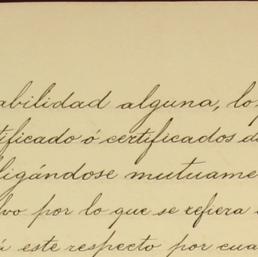 abilidad alguna, lo
tificado ó certificados d
ligándose mutuame
lvo por lo que se refiera
á este respecto por cua